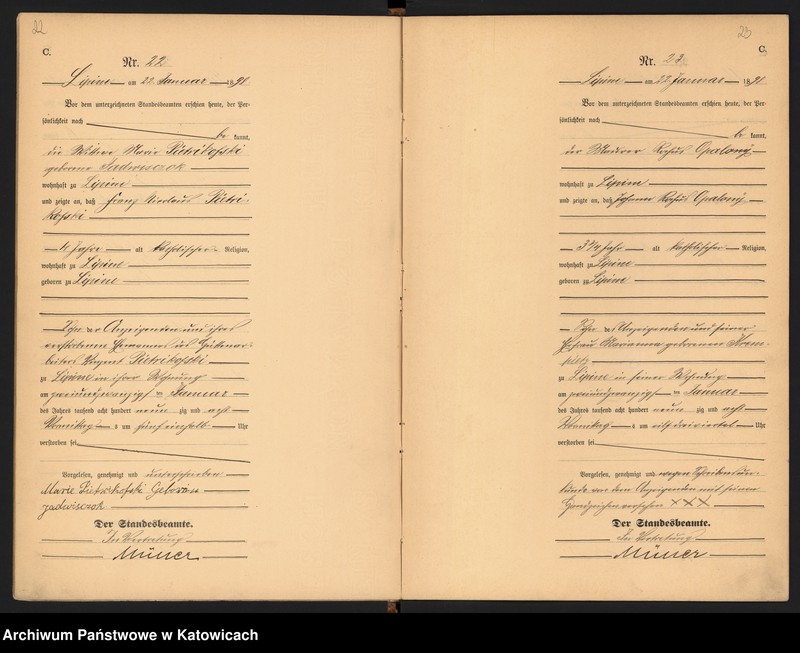 22
C.
Nr. 22
Lipine am 22. Januar 1898
Vor dem unterzeichneten Standesbeamten erschien heute, der Per-
sönlichkeit nach
be kannt,
die Witwe Marie Pietrikofski
geborene
wohnhaft zu Lipine
und zeigte an, daß Franz Nicolaus Pietri-
kofski
4 Jahre alt katholischer Religion,
wohnhaft zu Lipine
geboren zu Lipine
Sohn der Anzeigenden und ihres
verstorbenen Ehemannes des Hüttenar-
beiters Pietrikofski
zu Lipine in ihrer Wohnung
am zweiundzwanzigsten Januar
des Jahres tausend acht hundert neun zig und acht
Vormittag s um fünf einhalb Uhr
verstorben sei
Vorgelesen, genehmigt und unterschrieben
Marie Pietrikofski Geboren
Der Standesbeamte.
In Vertretung
Müller
23
C.
Nr. 23
Lipine am 22. Januar 1898
Vor dem unterzeichneten Standesbeamten erschien heute, der Per-
sönlichkeit nach
be kannt,
der Maurer Rochus Opalony
wohnhaft zu Lipine
und zeigte an, daß Johann Rochus Opalony
3 1/4 Jahr alt katholischer Religion,
wohnhaft zu Lipine
geboren zu Lipine
Sohn des Anzeigenden und seiner
Ehefrau Marianna geborenen
zu Lipine in seiner Wohnung
am zweiundzwanzigsten Januar
des Jahres tausend acht hundert neun zig und acht
Vormittag s um elf dreiviertel Uhr
verstorben sei
Vorgelesen, genehmigt und wegen Schreibensun-
kunde von dem Anzeigenden mit seinem
Handzeichen versehen XXX
Der Standesbeamte.
In Vertretung
Müller
Archiwum Państwowe w Katowicach